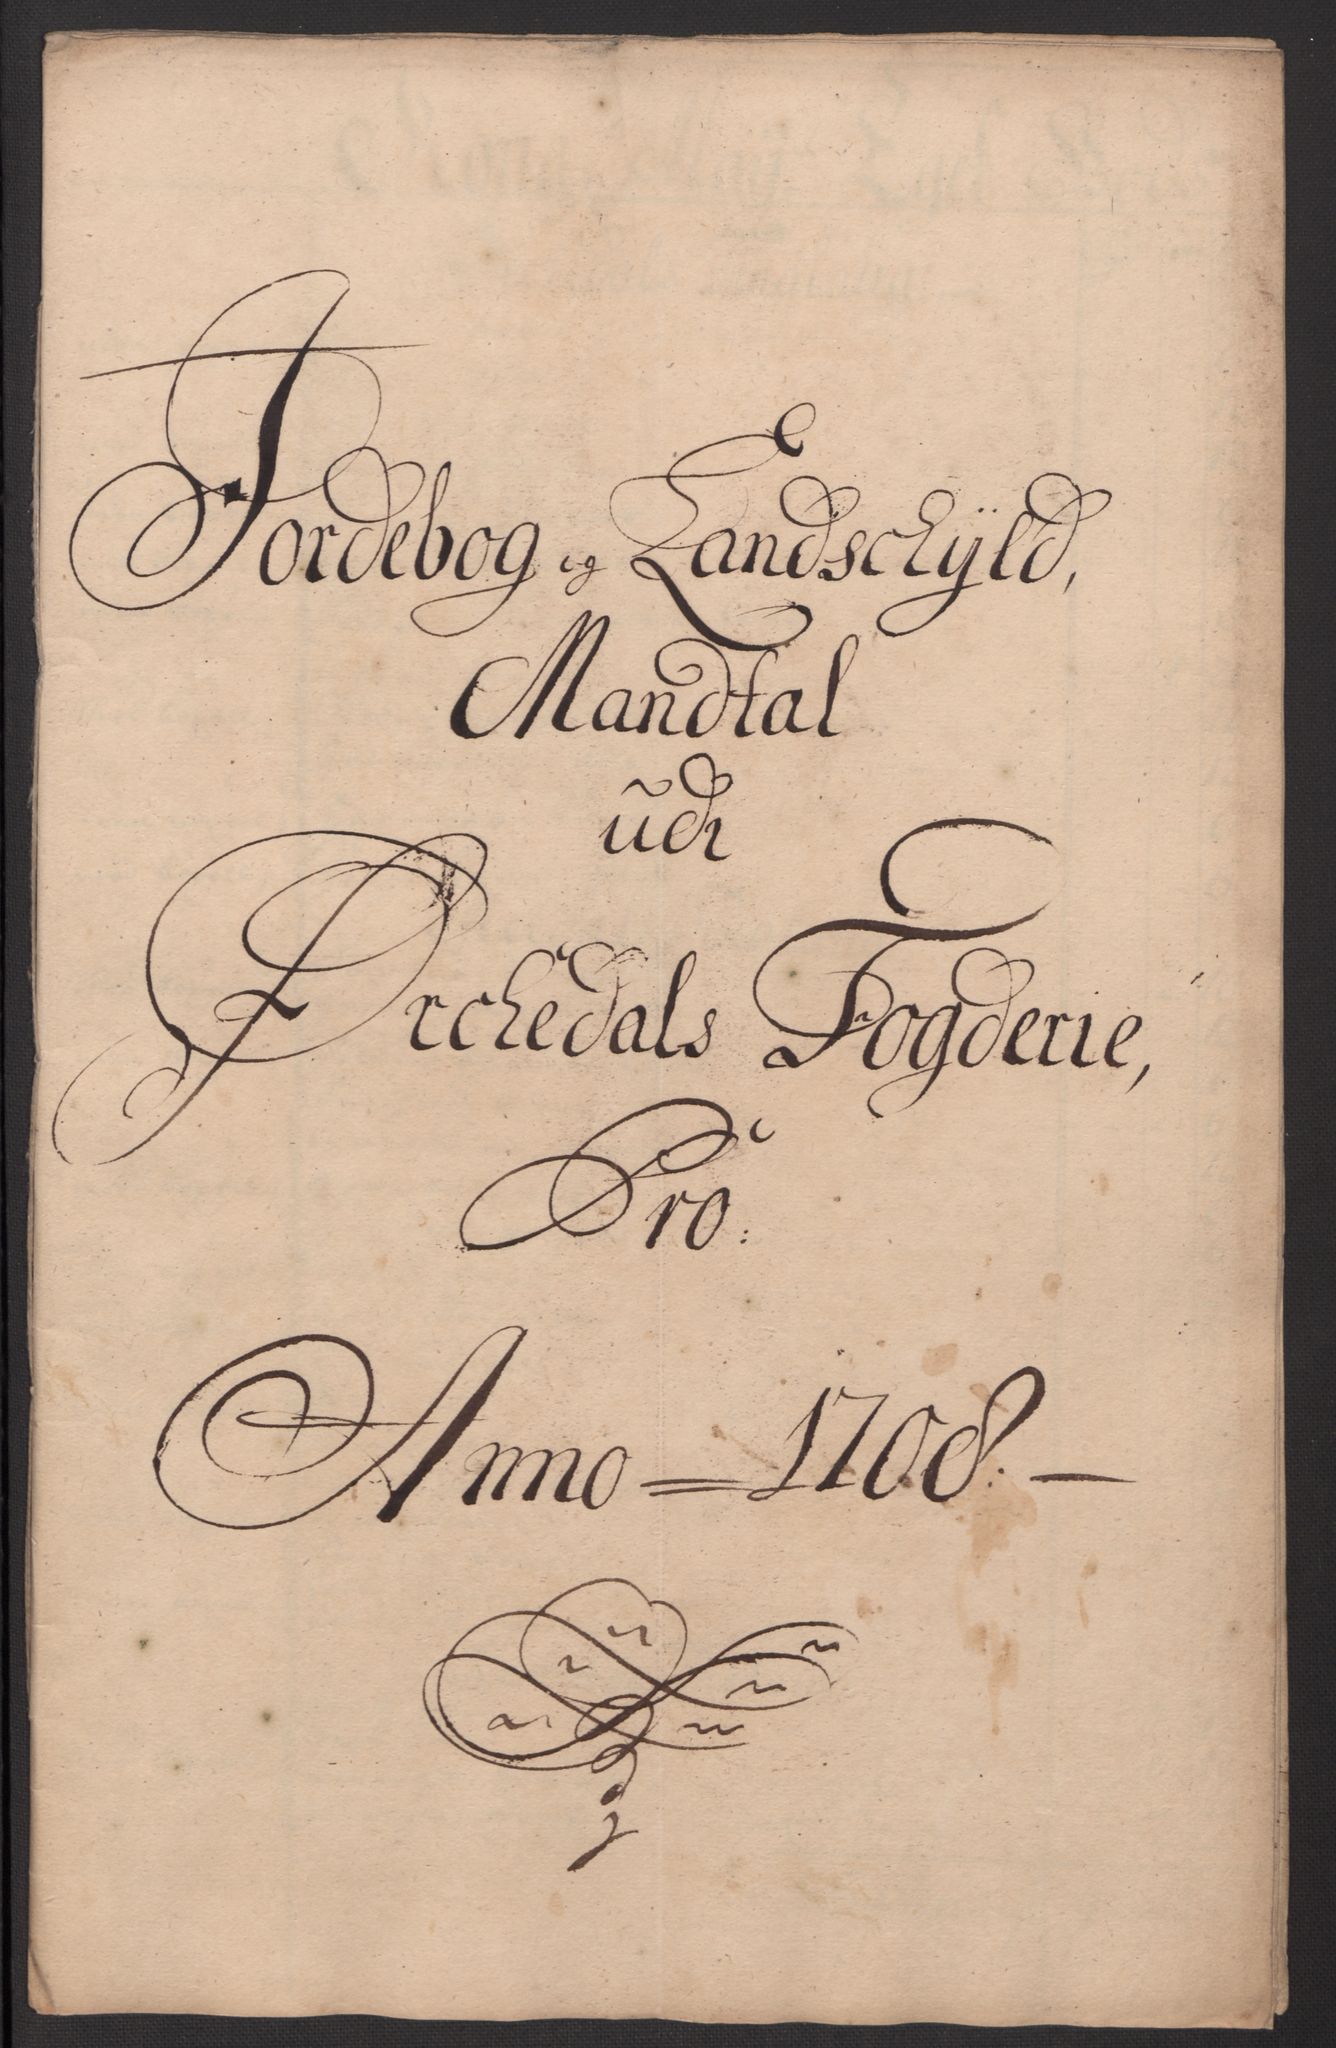 Jordebog og Landschÿld,
Mandtal
udi
Ørchedals Fogderie,
Pro.
Anno = 1708. —